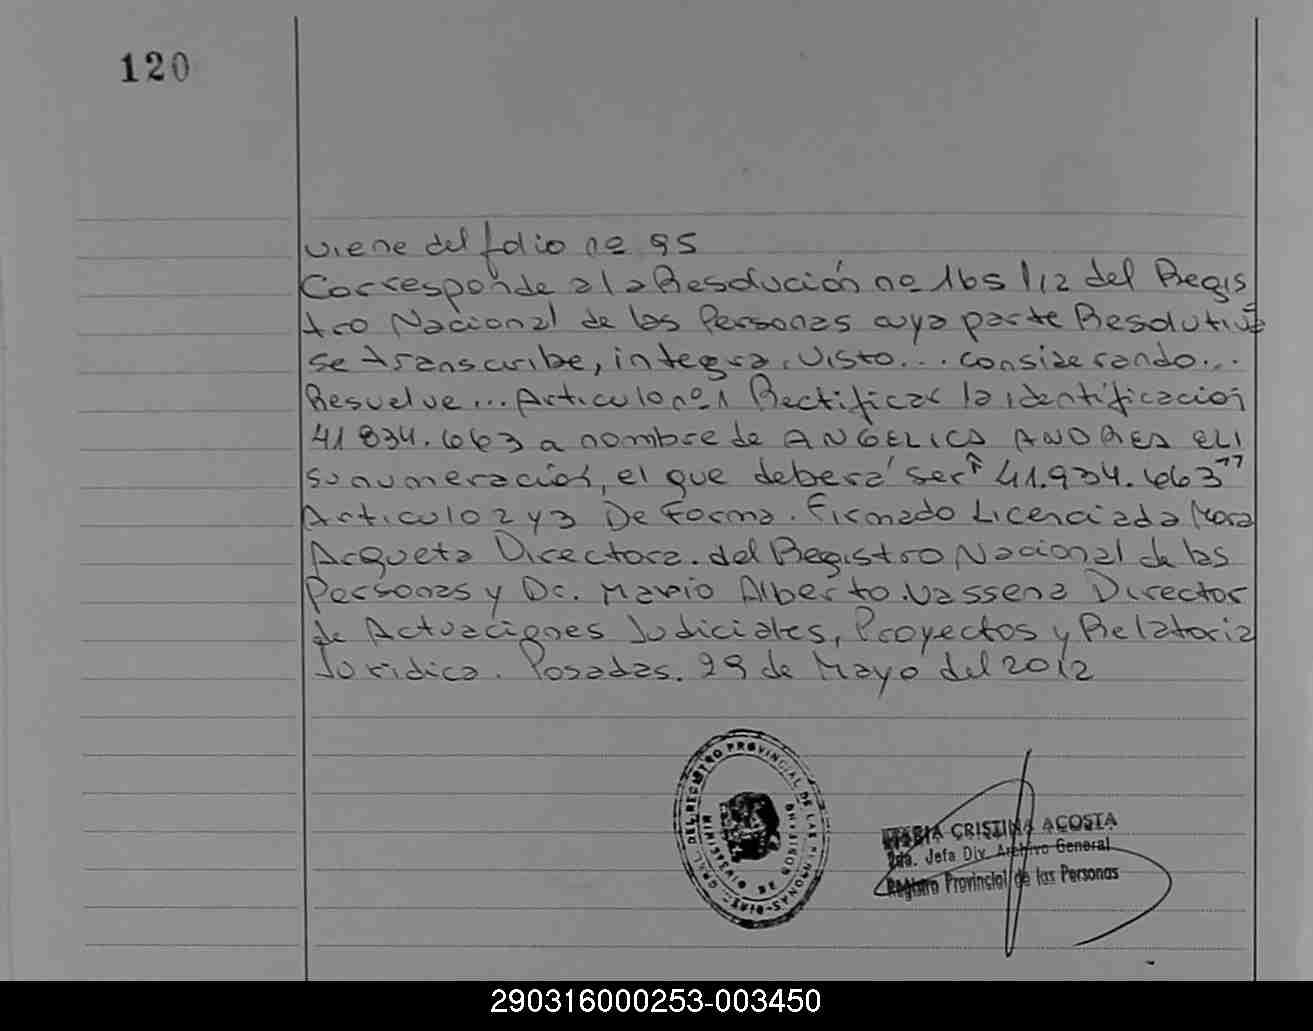 120
viene del folio no 95
Corresponde a la Resolución no 165/12 del Regis
tro Nacional de las Personas cuya parte Resolutiva
se transcribe, integra. Visto... considerando...
Resuelve... Articulo no 1 Rectificar la identificación
41834.663 a nombre de ANGELICA ANDREA ELI
su numeración, el que deberá ser "41.934.663"
Articulo 2 y 3 De Forma. Firmado Licenciada Mora
Arqueta Directora. del Registro Nacional de las
Personas y Dr. Mario Alberto Vassena Director
de Actuaciones Judiciales, Proyectos y Relatoria
Juridica. Posadas. 29 de Mayo del 2012
GRAL. DEL REGISTRO PROVINCIAL DE LAS PERSONAS - DIREC.
MARIA CRISTINA ACOSTA
2da. Jefa Div. Archivo General
Registro Provincial de las Personas
290316000253-003450